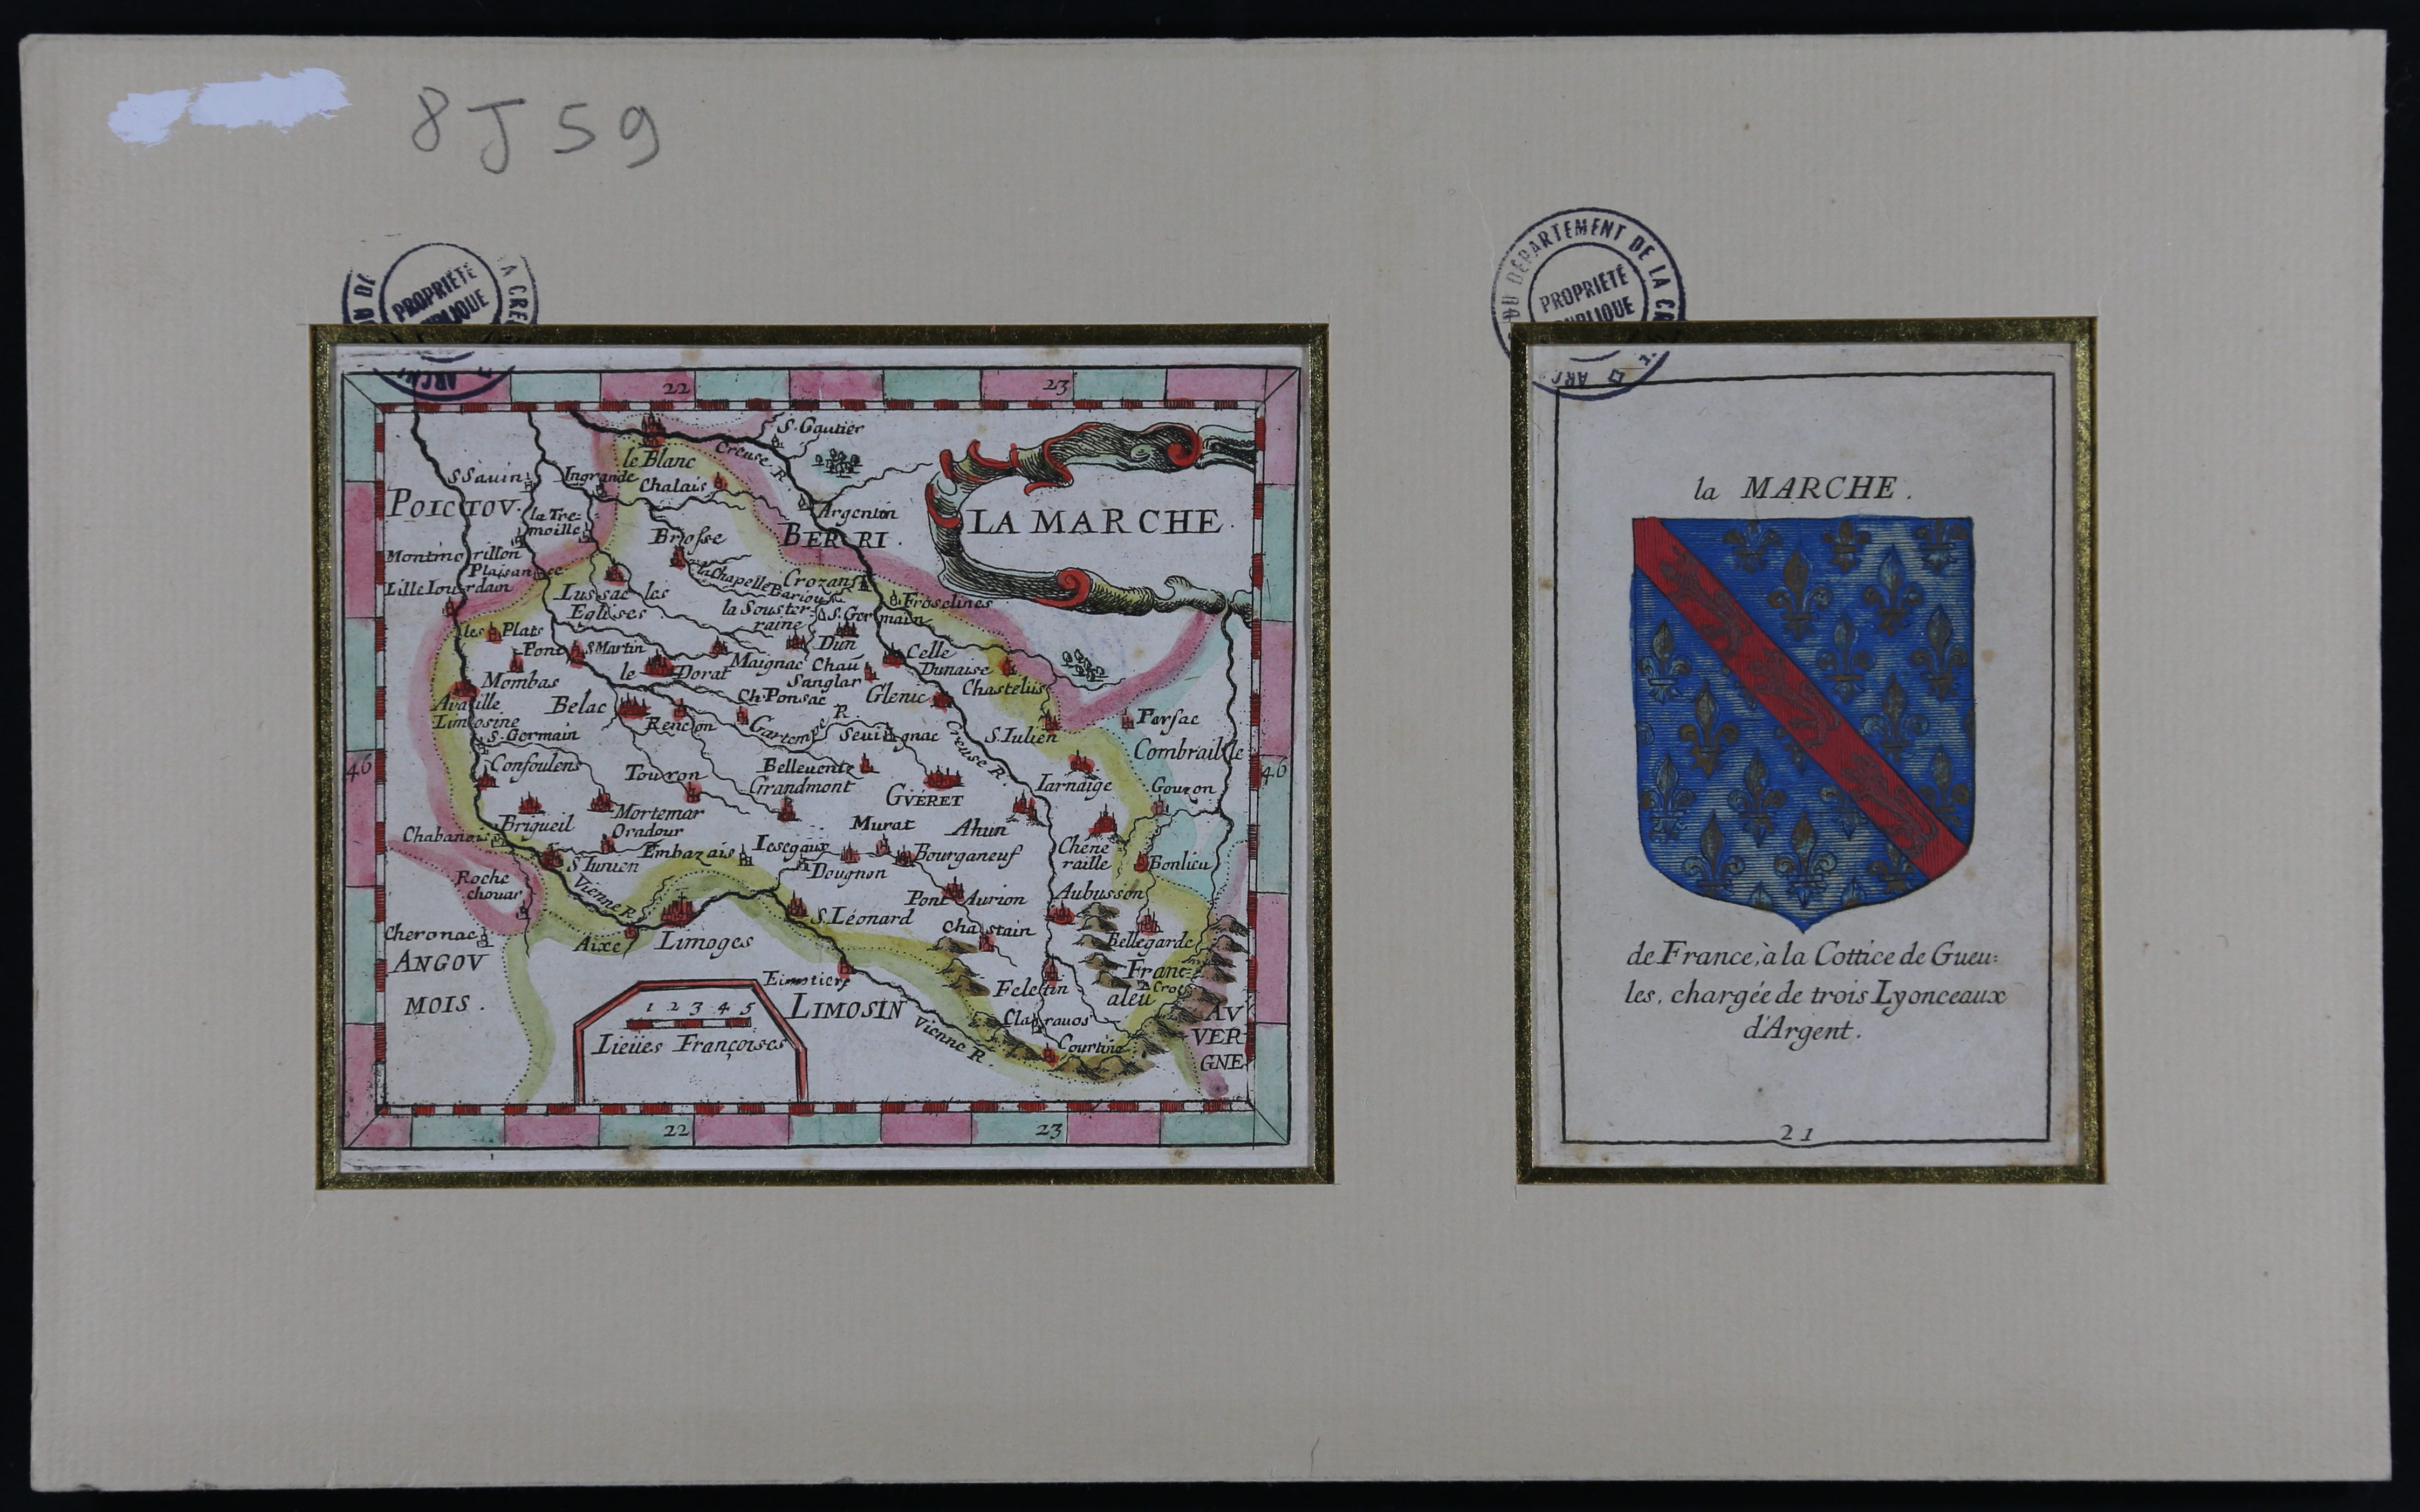 8 J 59
PROPRIÉTÉ
DU DÉPARTEMENT DE LA
PROPRIÉTÉ
22
23
S. Gautier
le Blanc
Creuse R
S Sauin
Ingrande
Chalais
POICTOV.
Argenton
LA MARCHE.
la Tre-
moille
Brosse
BERRI.
Montmorillon
Plaisance
la Chapelle Bariou
Crozans
Lille Iourdain
Lussac les
Eglises
la Souster-
raine
Froselines
S. Germain
les Plats
Pont S Martin
Dun
Celle
Dunaise
le Dorat
Maignac
Chau
Sanglar
Mombas
Chastelus
Availle
Limosine
Belac
Ch. Ponsac
Glenic
Rencon
R
Persac
S. Germain
Gartempe
Seuignac
Creuse R.
S. Iulien
Combraille
46
Confoulens
Touron
Belleuente
Grandmont
GVÉRET
Iarnaige
Gouzon
46
Brigueil
Mortemar
Oradour
Murat
Ahun
Chabanois
S. Iunien
Embazais
Bourganeuf
Chene
raille
Bonlieu
Dougnon
Roche
chouar
Vienne R.
Pont Aurion
Aubusson
S. Léonard
Chastain
Cheronac
Aixe
Limoges
Bellegarde
ANGOV
MOIS.
Franc-
aleu
Croc
Feletin
1 2 3 4 5
LIMOSIN
Lieües Françoises
Vienne R
Courtine
AV
VER
GNE
22
23
la MARCHE.
de France, à la Cottice de Gueu:
les, chargée de trois Lyonceaux
d'Argent.
21